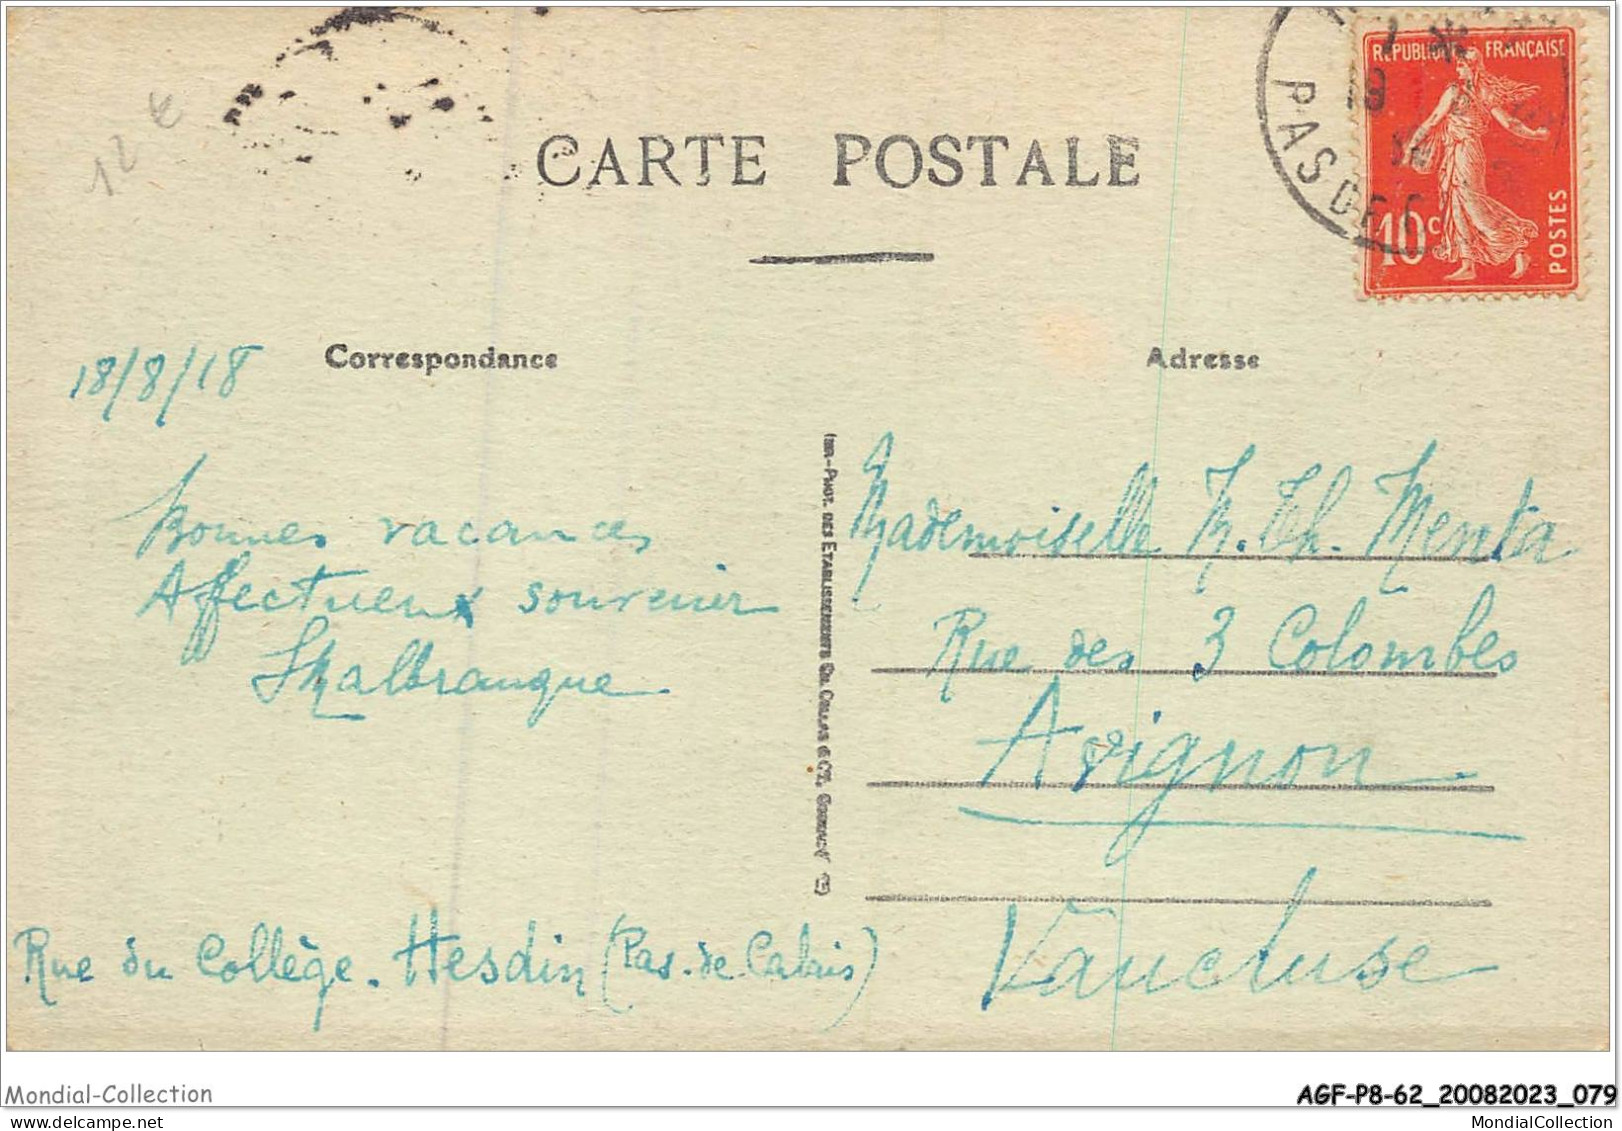 12 €
CARTE POSTALE
RÉPUBLIQUE FRANÇAISE
10c
POSTES
PAS DE C
18/8/18
Correspondance
Bonnes vacances
Affectueux souvenir
Rue du Collège. Hesdin (Pas-de-Calais)
IMP.-PHOT. DES ETABLISSEMENTS CH. COLLAS & Cie, COGNAC
Adresse
Mademoiselle M. Th. Menta
Rue des 3 Colombes
Avignon
Vaucluse
Mondial-Collection
AGF-P8-62_20082023_079
MondialCollection